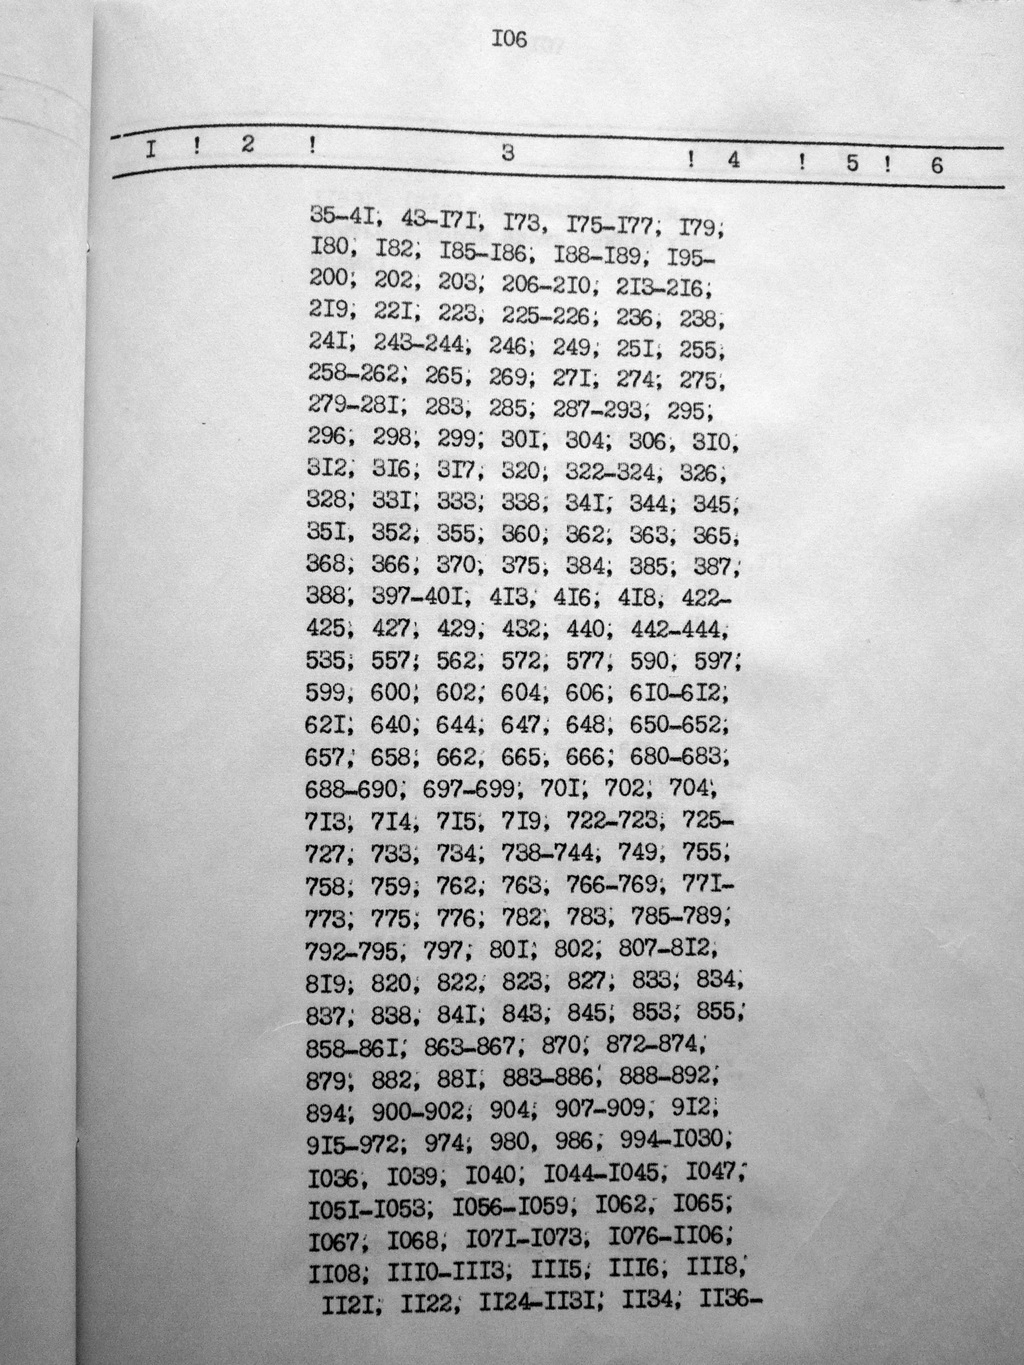 I06
I ! 2 ! 3 ! 4 ! 5 ! 6
35-4I, 43-I7I, I73, I75-I77; I79;
I80, I82; I85-I86; I88-I89; I95-
200; 202, 203; 206-2I0; 2I3-2I6;
2I9; 22I; 223, 225-226; 236, 238,
24I; 243-244; 246; 249; 25I, 255;
258-262; 265, 269; 27I; 274; 275,
279-28I; 283, 285; 287-293, 295;
296; 298; 299; 30I, 304; 306, 3I0,
3I2, 3I6; 3I7, 320; 322-324, 326;
328; 33I; 333; 338; 34I; 344; 345;
35I, 352; 355; 360; 362; 363; 365;
368; 366; 370; 375; 384; 385; 387;
388; 397-40I, 4I3, 4I6; 4I8, 422-
425; 427; 429; 432; 440; 442-444,
535; 557; 562; 572; 577; 590, 597;
599; 600; 602; 604; 606; 6I0-6I2;
62I; 640; 644; 647; 648; 650-652;
657; 658; 662, 665, 666; 680-683;
688-690; 697-699; 70I; 702; 704;
7I3; 7I4, 7I5, 7I9; 722-723, 725-
727; 733; 734; 738-744; 749, 755;
758; 759; 762; 763, 766-769; 77I-
773; 775; 776; 782; 783; 785-789;
792-795; 797; 80I; 802; 807-8I2,
8I9; 820; 822; 823; 827; 833; 834,
837; 838, 84I; 843; 845; 853; 855;
858-86I; 863-867; 870; 872-874;
879; 882, 88I, 883-886; 888-892;
894; 900-902; 904; 907-909; 9I2;
9I5-972; 974; 980, 986; 994-I030;
I036; I039; I040; I044-I045; I047;
I05I-I053; I056-I059; I062; I065;
I067; I068; I07I-I073; I076-II06;
II08; III0-III3; III5; III6; III8;
II2I; II22; II24-II3I; II34; II36-